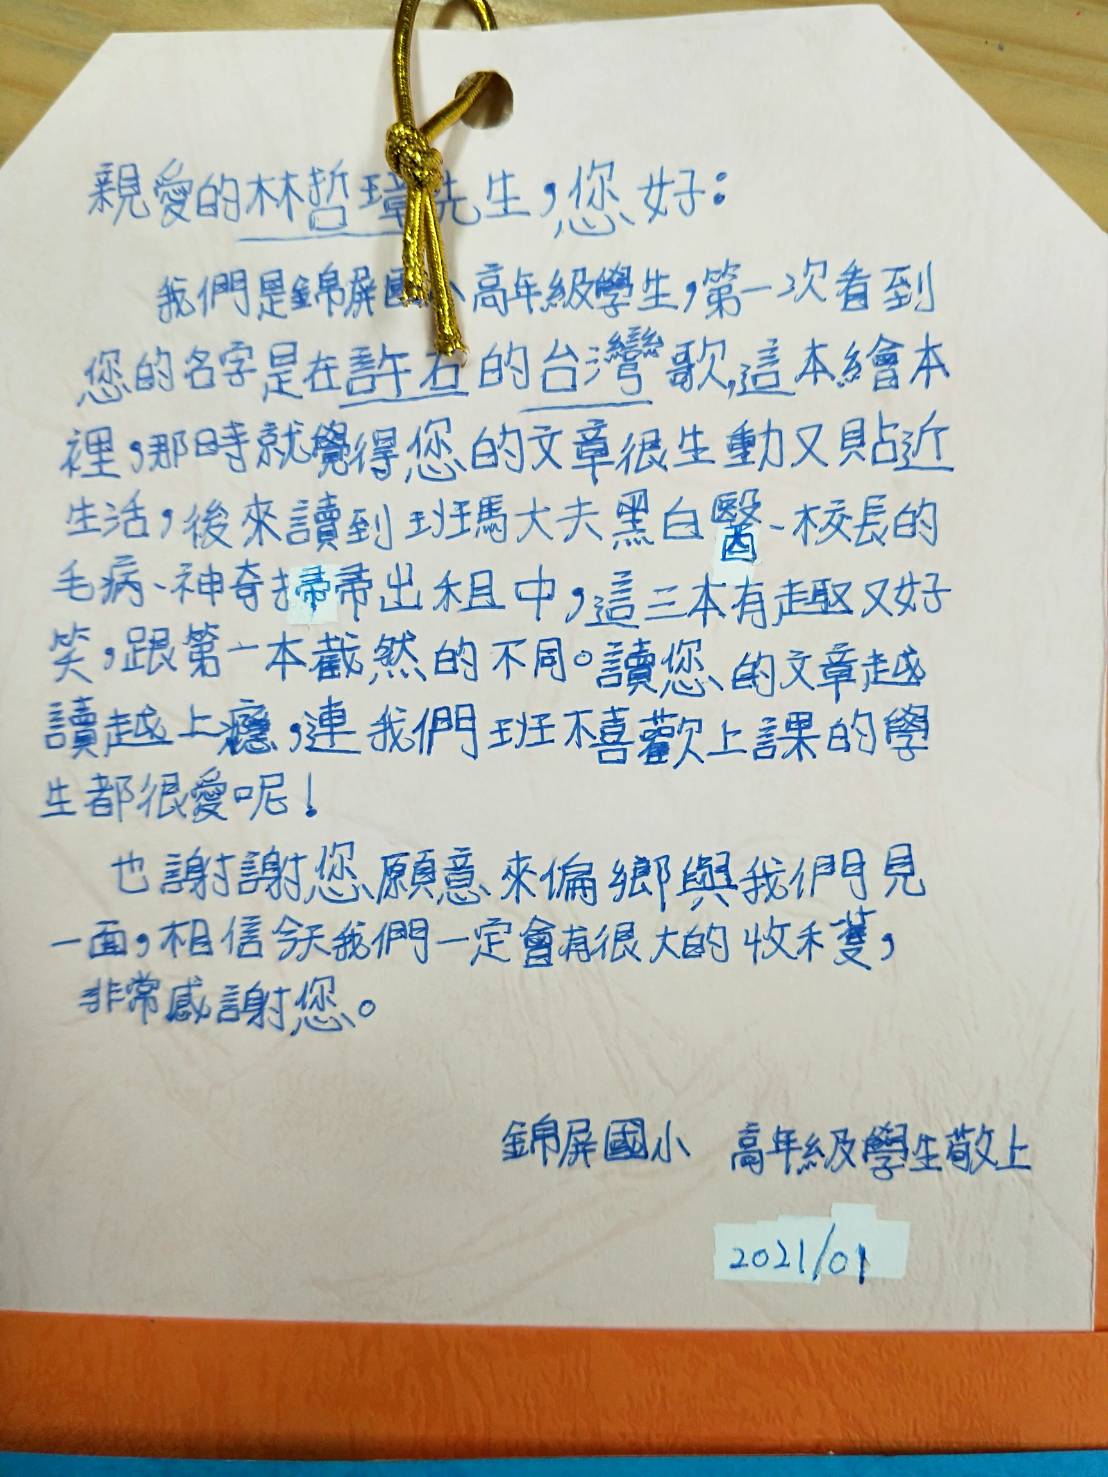 親愛的林哲璋先生，您好：
我們是錦屏國小高年級學生，第一次看到
您的名字是在許石的台灣歌，這本繪本
裡，那時就覺得您的文章很生動又貼近
生活，後來讀到班馬大夫黑白醫、校長的
毛病、神奇掃帚出租中，這三本有趣又好
笑，跟第一本截然的不同。讀您的文章越
讀越上癮，連我們班不喜歡上課的學
生都很愛呢！
也謝謝您願意來偏鄉與我們見
一面，相信今天我們一定會有很大的收穫，
非常感謝您。
錦屏國小 高年級學生敬上
2021/01